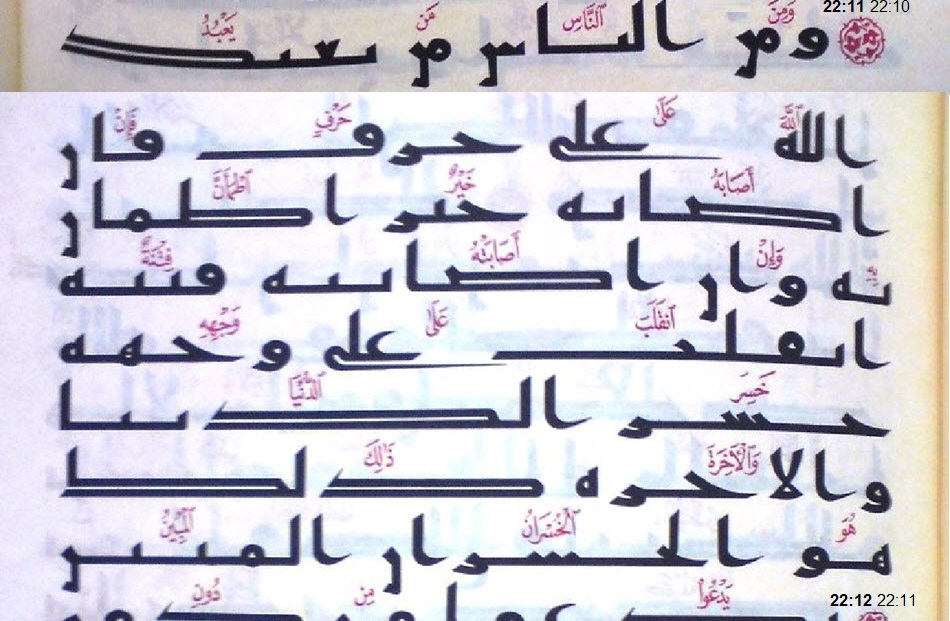 22:11 22:10
وَمِنَ ٱلنَّاسِ مَن يَعْبُدُ
ومن الناس من يعبد
ٱللَّهَ عَلَىٰ حَرْفٍ فَإِنْ
الله على حرف فان
أَصَابَهُ خَيْرٌ ٱطْمَأَنَّ
اصابه خير اطمان
بِهِ وَإِنْ أَصَابَتْهُ فِتْنَةٌ
به وان اصابته فتنه
ٱنقَلَبَ عَلَىٰ وَجْهِهِ
انقلب على وجهه
خَسِرَ ٱلدُّنْيَا
خسر الدنيا
وَٱلْآخِرَةَ ذَٰلِكَ
والاخره ذلك
هُوَ ٱلْخُسْرَانُ ٱلْمُبِينُ
هو الخسران المبين
22:12 22:11
يَدْعُوا۟ مِن دُونِ